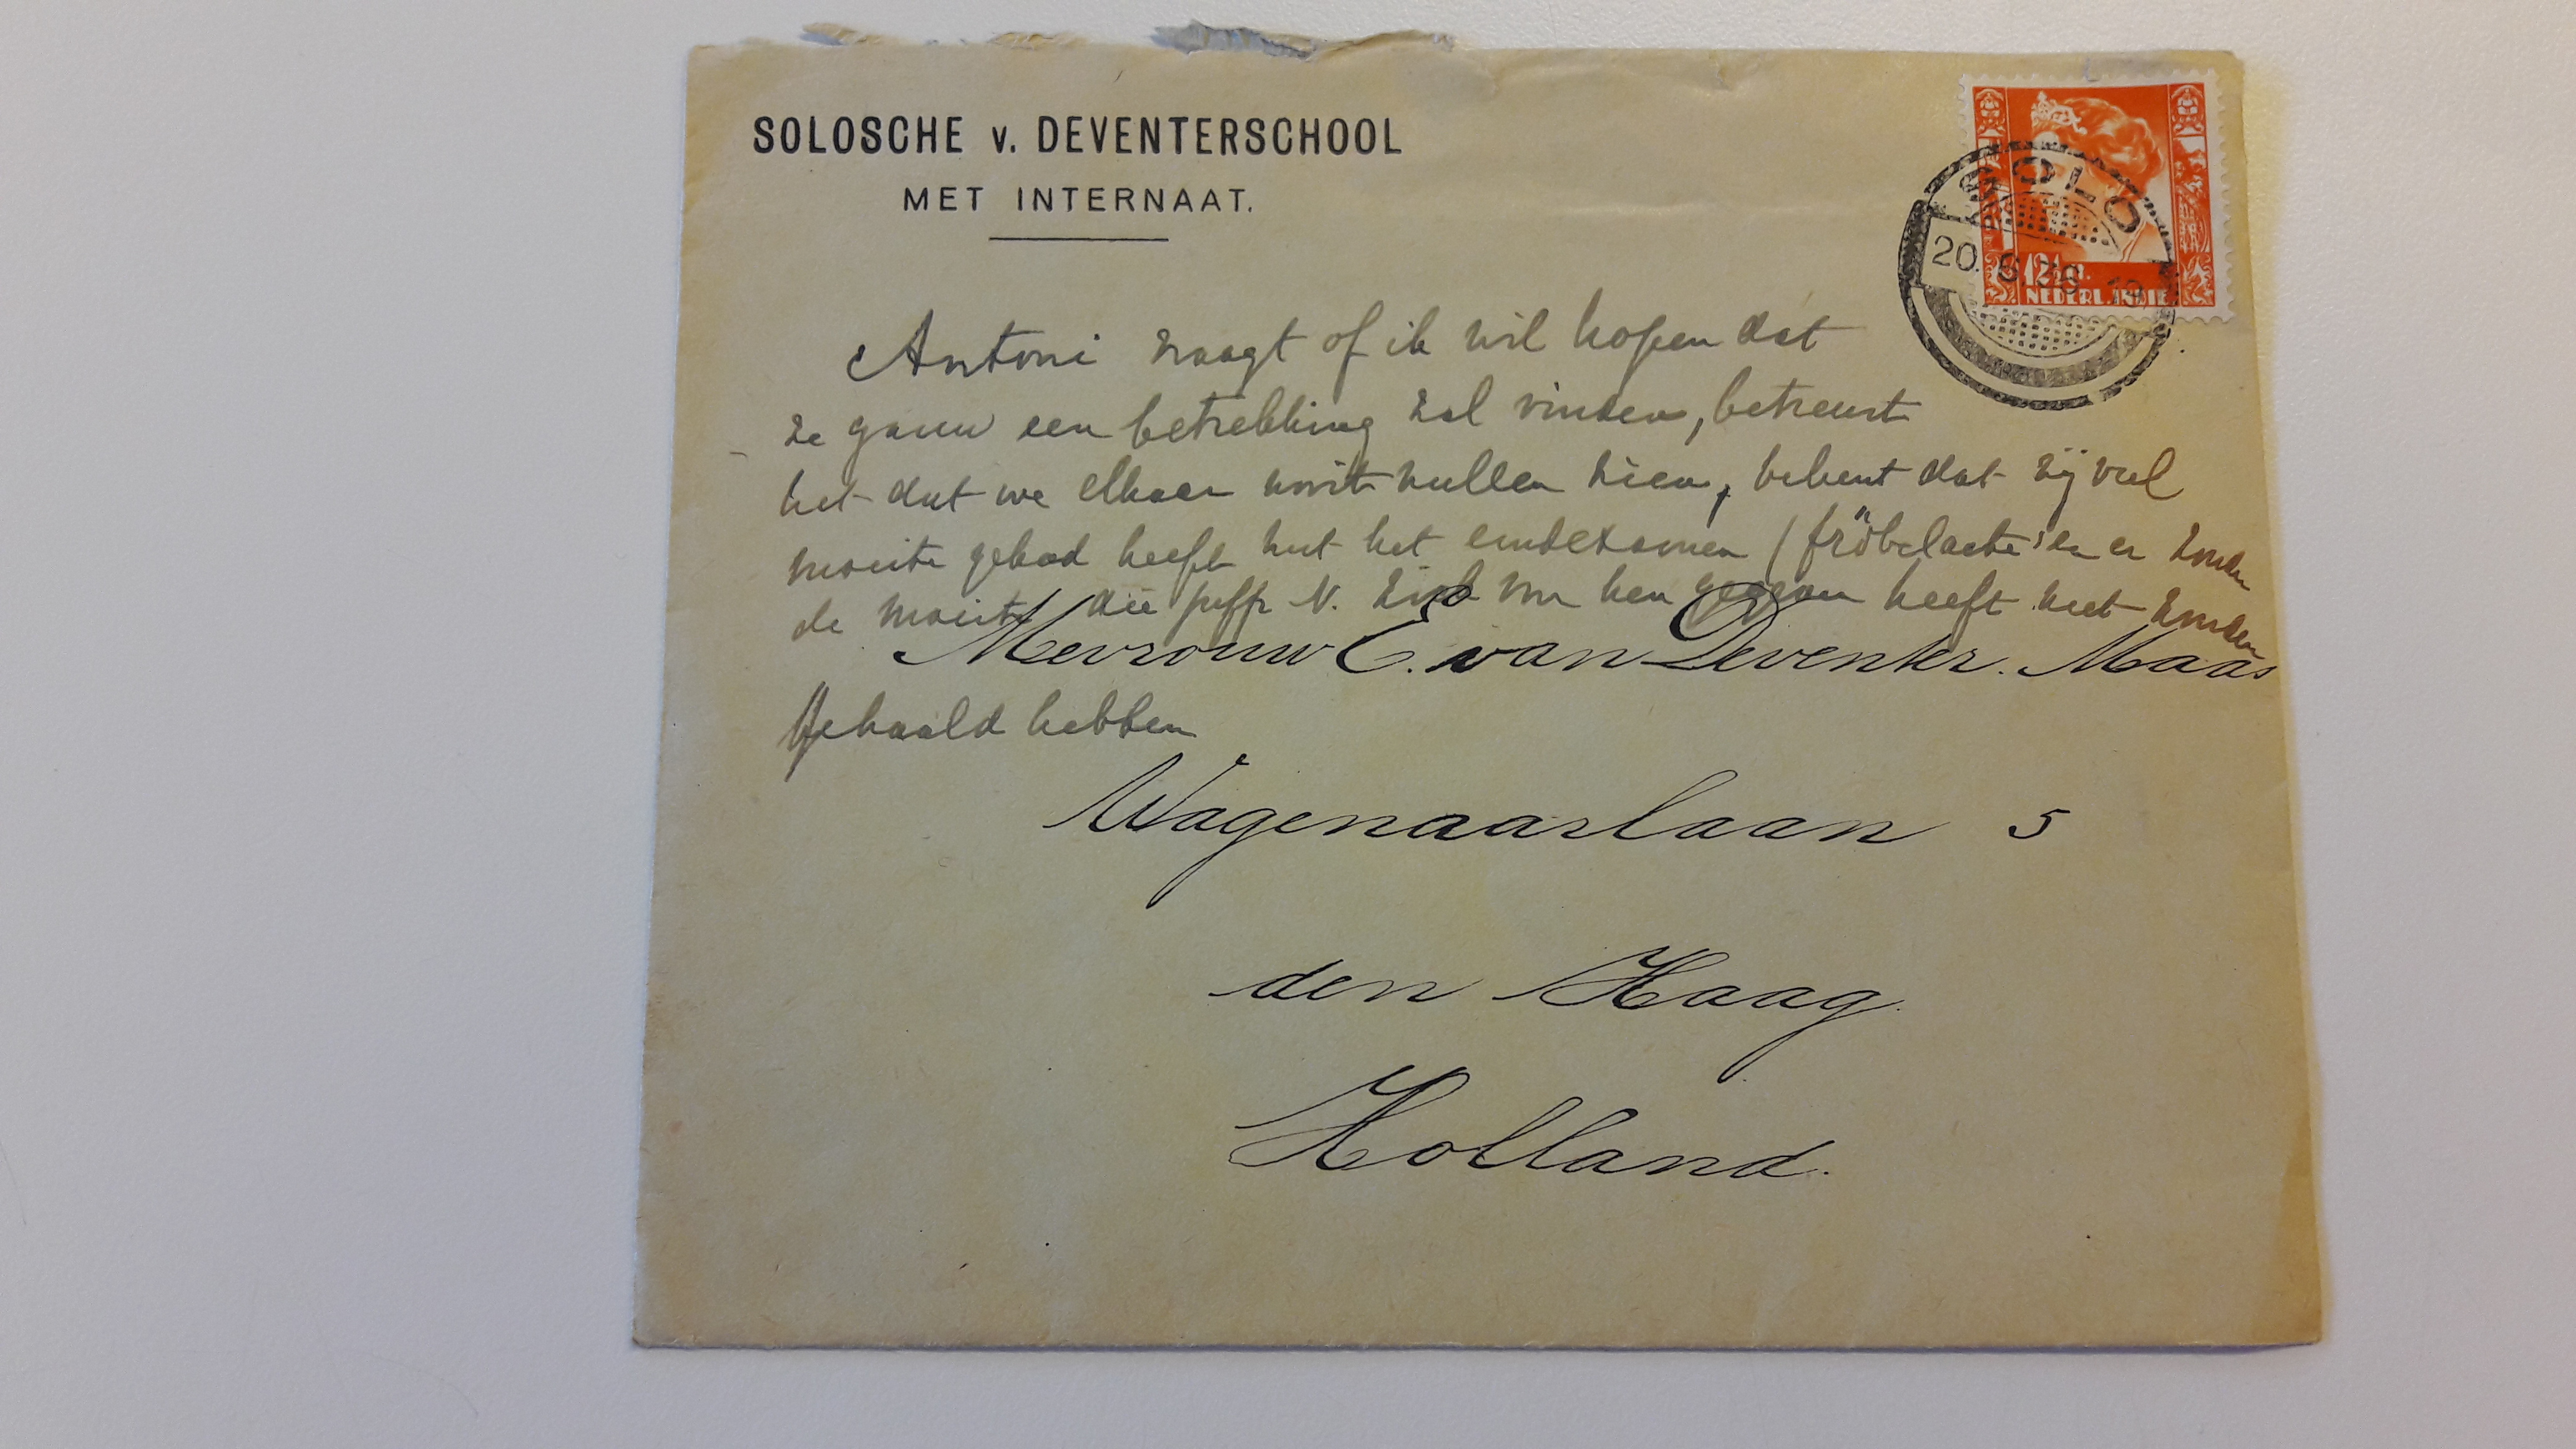 SOLOSCHE v. DEVENTERSCHOOL
MET INTERNAAT.
SOLO
20. 6.36 19
12½ct.
NEDERL. INDIE
Antoni vraagt of ik wil hopen dat
ze gauw een betrekking zal vinden, betreurt
het dat we elkaar nooit zullen zien, bekent dat zij veel
moeite gehad heeft met het eindexamen (fröbelacte) en er zonder
de moeite die juffr N. zich voor hen gegeven heeft niet zouden
Mevrouw E. van Deventer. Maas
gehaald hebben
Wagenaarlaan 5
den Haag.
Holland.